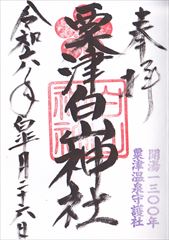 奉拝
開湯一三〇〇年
粟津温泉守護社
粟津白山神社
令和六年皐月二十六日